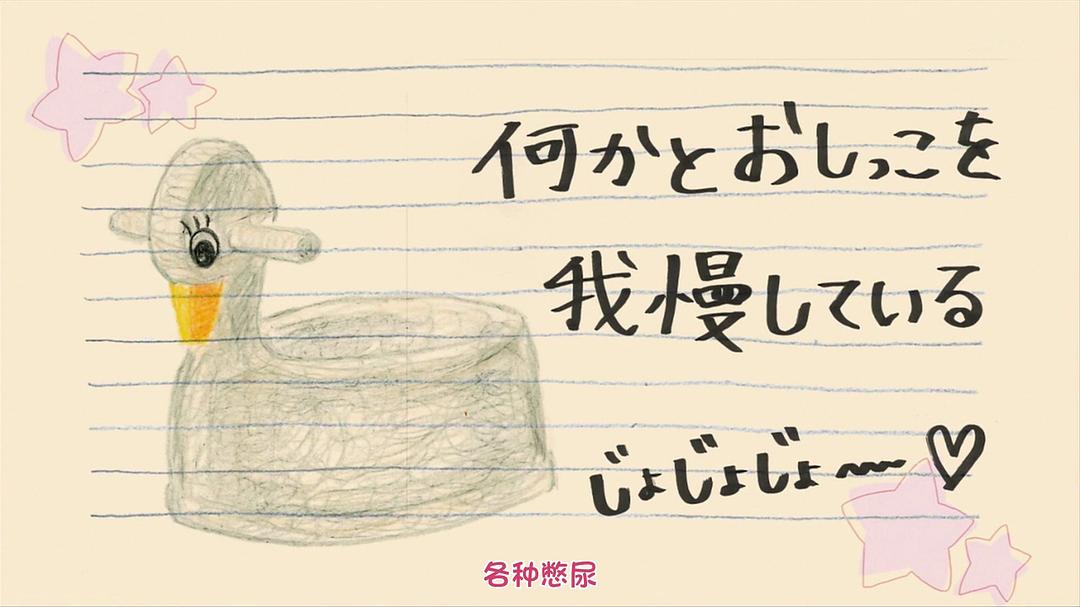 何かとおしっこを
我慢している
じょじょじょ〜〜♡
各种憋尿